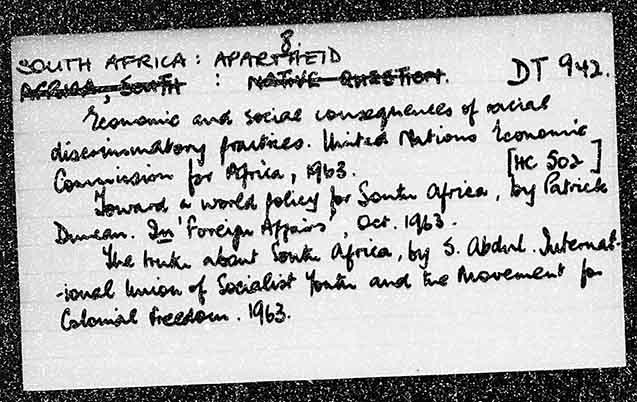 8.
SOUTH AFRICA: APARTHEID
AFRICA, SOUTH : NATIVE QUESTION. DT 942.
Economic and social consequences of racial
discriminatory practices. United Nations Economic
Commission for Africa, 1963. [HC 502]
Toward a world policy for South Africa, by Patrick
Duncan. In 'Foreign Affairs', Oct. 1963.
The truth about South Africa, by S. Abdul. Internat-
-ional Union of Socialist Youth and the Movement for
Colonial Freedom. 1963.